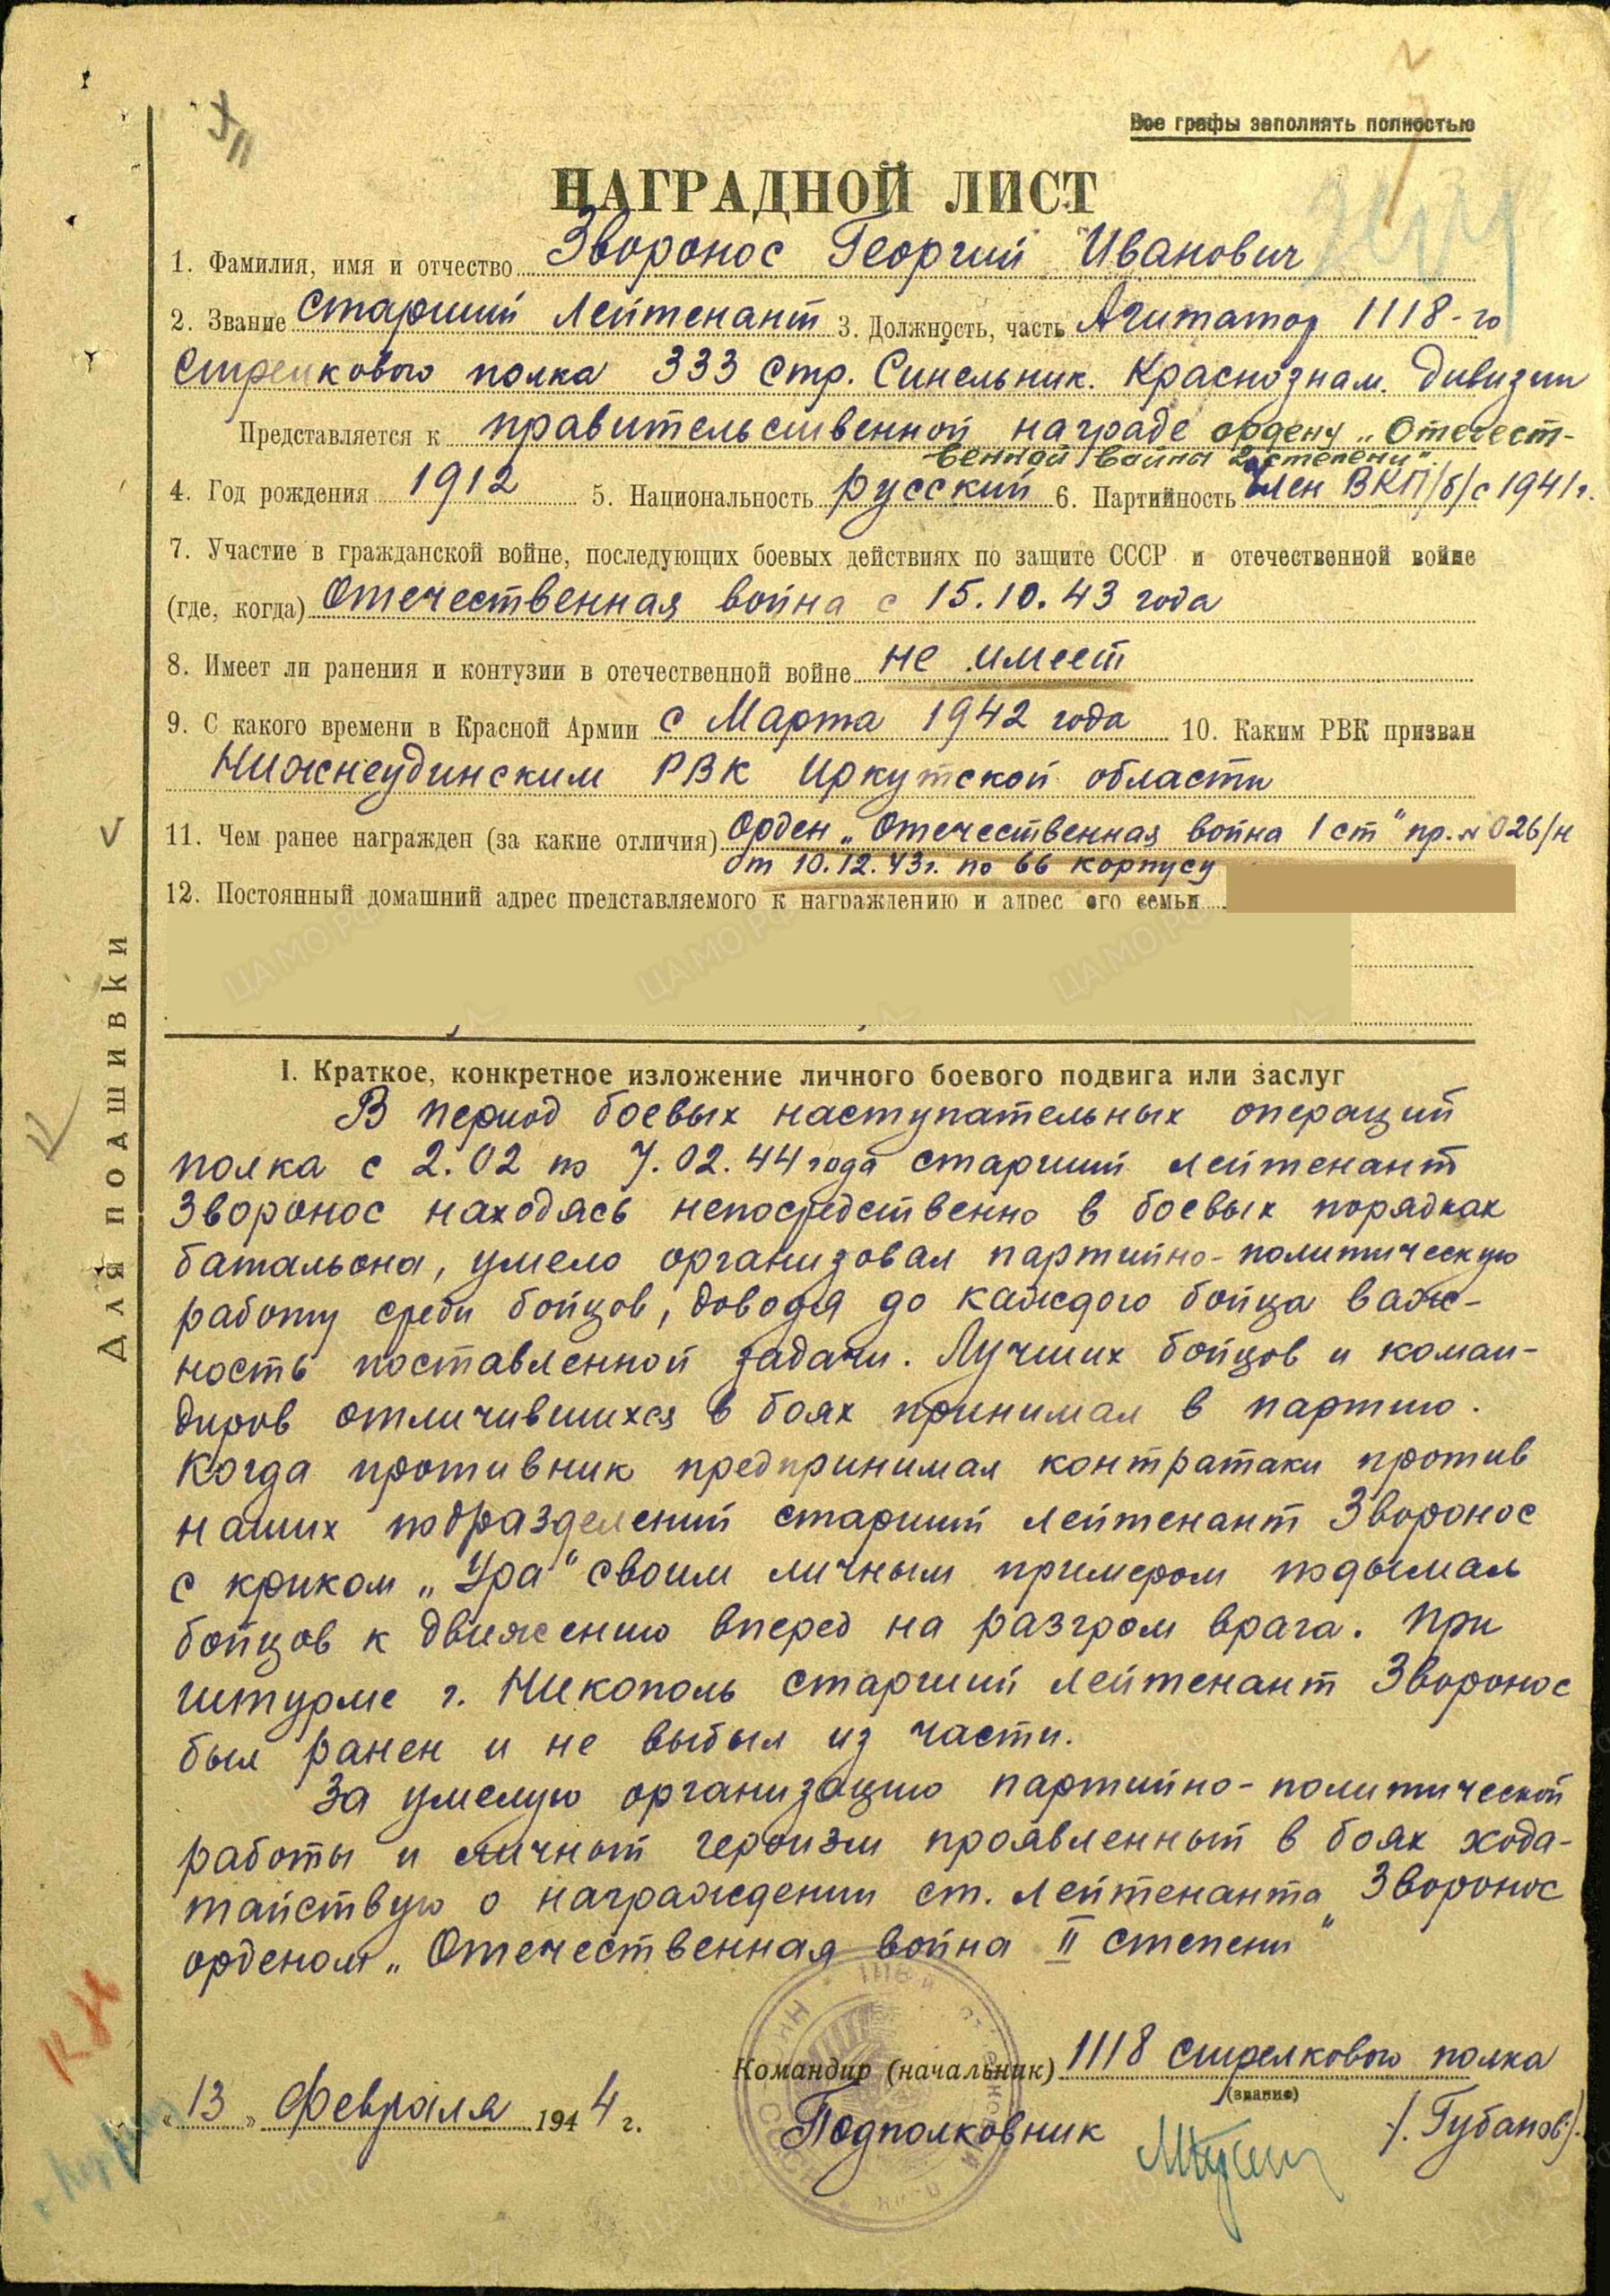 Все графы заполнять полностью
НАГРАДНОЙ ЛИСТ
1. Фамилия, имя и отчество Зворонос Георгий Иванович
2. Звание Старший Лейтенант 3. Должность, часть Агитатор 1118-го
Стрелкового полка 333 Стр. Синельник. Краснознам. Дивизии
Представляется к правительственной награде ордену „Отечест-
венной война 2 степени".
4. Год рождения 1912 5. Национальность русский 6. Партийность Член ВКП/б/ с 1941 г.
7. Участие в гражданской войне, последующих боевых действиях по защите СССР и отечественной войне
(где, когда) Отечественная война с 15.10.43 года
8. Имеет ли ранения и контузии в отечественной войне не имеет
9. С какого времени в Красной Армии с Марта 1942 года 10. Каким РВК призван
Нижнеудинским РВК Иркутской области
11. Чем ранее награжден (за какие отличия) Орден „Отечественная война 1 ст" пр. № 026/н
от 10.12.43г. по 66 корпусу
12. Постоянный домашний адрес представляемого к награждению и адрес его семьи
Для подшивки
I. Краткое, конкретное изложение личного боевого подвига или заслуг
В период боевых наступательных операций
полка с 2.02 по 7.02.44 года старший лейтенант
Зворонос находясь непосредственно в боевых порядках
батальона, умело организовал партийно-политическую
работу среди бойцов, доводя до каждого бойца важ-
ность поставленной задачи. Лучших бойцов и коман-
диров отличившихся в боях принимал в партию.
Когда противник предпринимал контратаки против
наших подразделений старший лейтенант Зворонос
с криком „Ура" своим личным примером подымал
бойцов к движению вперед на разгром врага. При
штурме г. Никополь старший лейтенант Зворонос
был ранен и не выбыл из части.
За умелую организацию партийно-политической
работы и личный героизм проявленный в боях хода-
тайствую о награждении ст. лейтенанта Зворонос
орденом „Отечественная война II степени"
Командир (начальник) 1118 стрелкового полка
(звание)
„13" Февраля 1944 г.
Подполковник /. Губанов/.